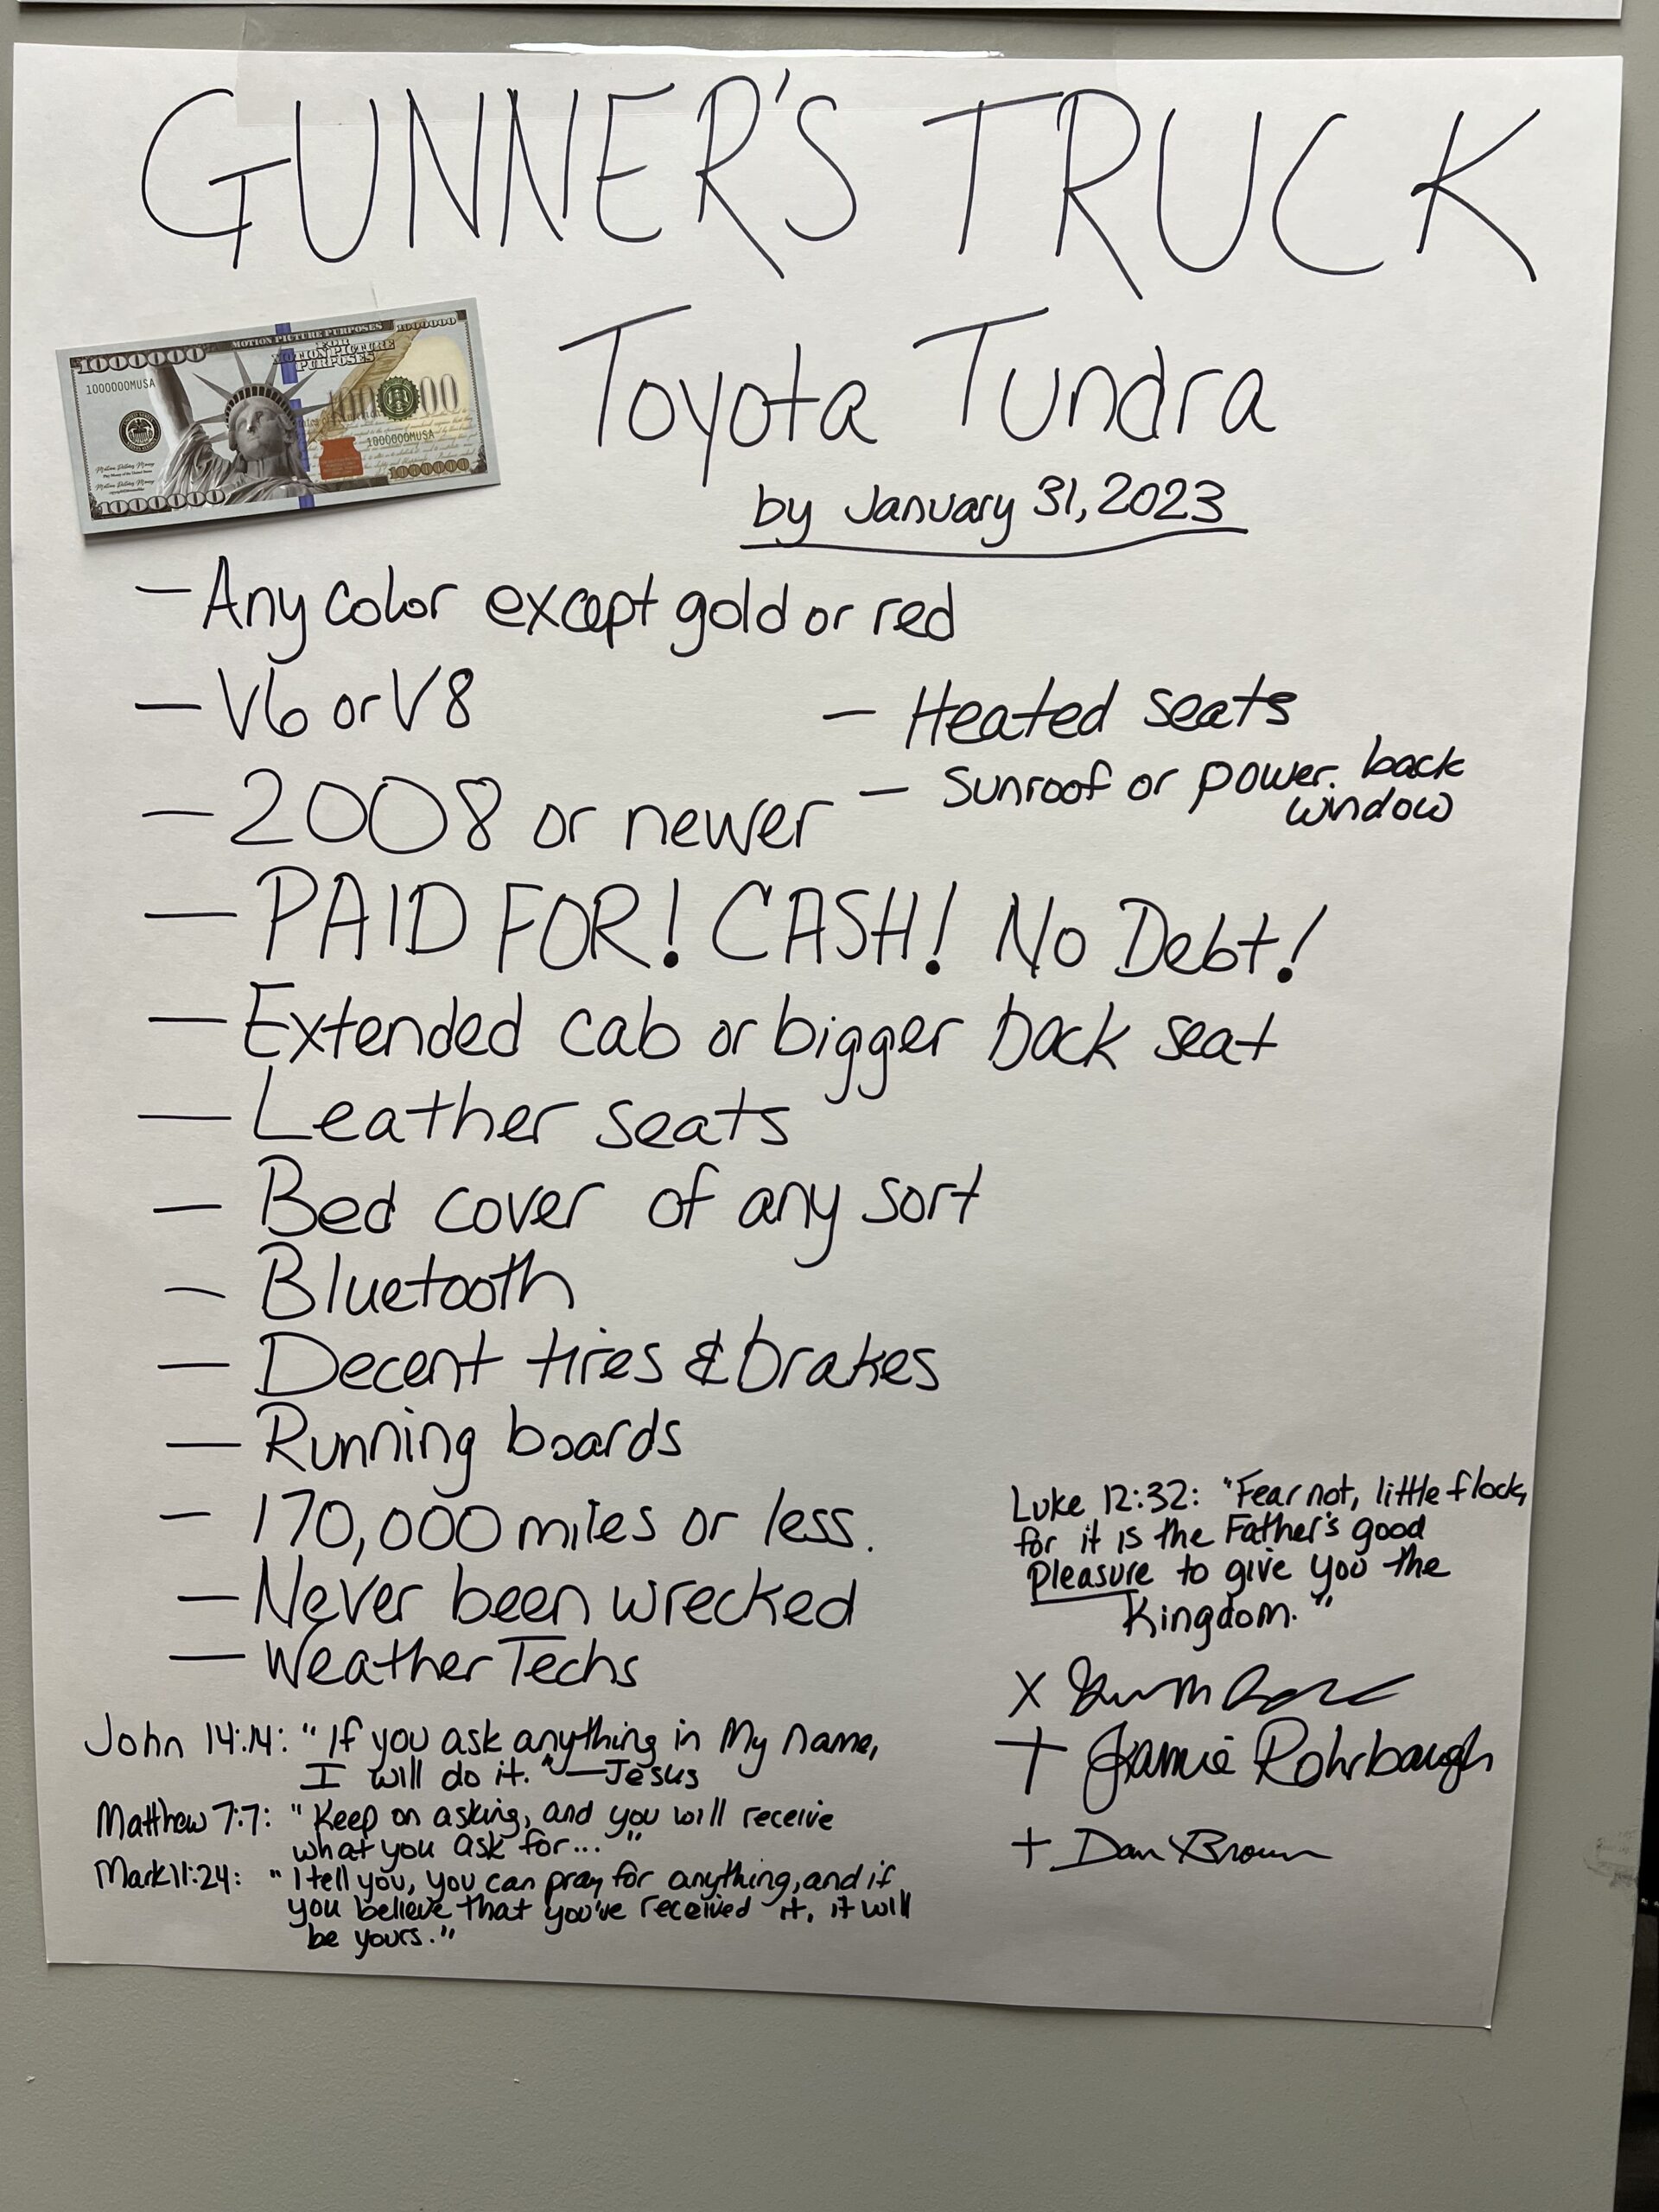 GUNNER'S TRUCK
1000000
MOTION PICTURE PURPOSES
1000000
FOR
MOTION PICTURE
PURPOSES
1000000MUSA
1000000MUSA
1000000
1000000
Toyota Tundra
by January 31, 2023
— Any color except gold or red
— V6 or V8
— Heated seats
— 2008 or newer
— Sunroof or power back
window
— PAID FOR! CASH! No Debt!
— Extended cab or bigger back seat
— Leather seats
— Bed cover of any sort
— Bluetooth
— Decent tires & brakes
— Running boards
— 170,000 miles or less.
— Never been wrecked
— WeatherTechs
Luke 12:32: "Fear not, little flock,
for it is the Father's good
pleasure to give you the
Kingdom."
John 14:14: "If you ask anything in My name,
I will do it." —Jesus
Matthew 7:7: "Keep on asking, and you will receive
what you ask for..."
Mark 11:24: "I tell you, you can pray for anything, and if
you believe that you've received it, it will
be yours."
X
+ Jamie Rohrbaugh
+ Dan Brown